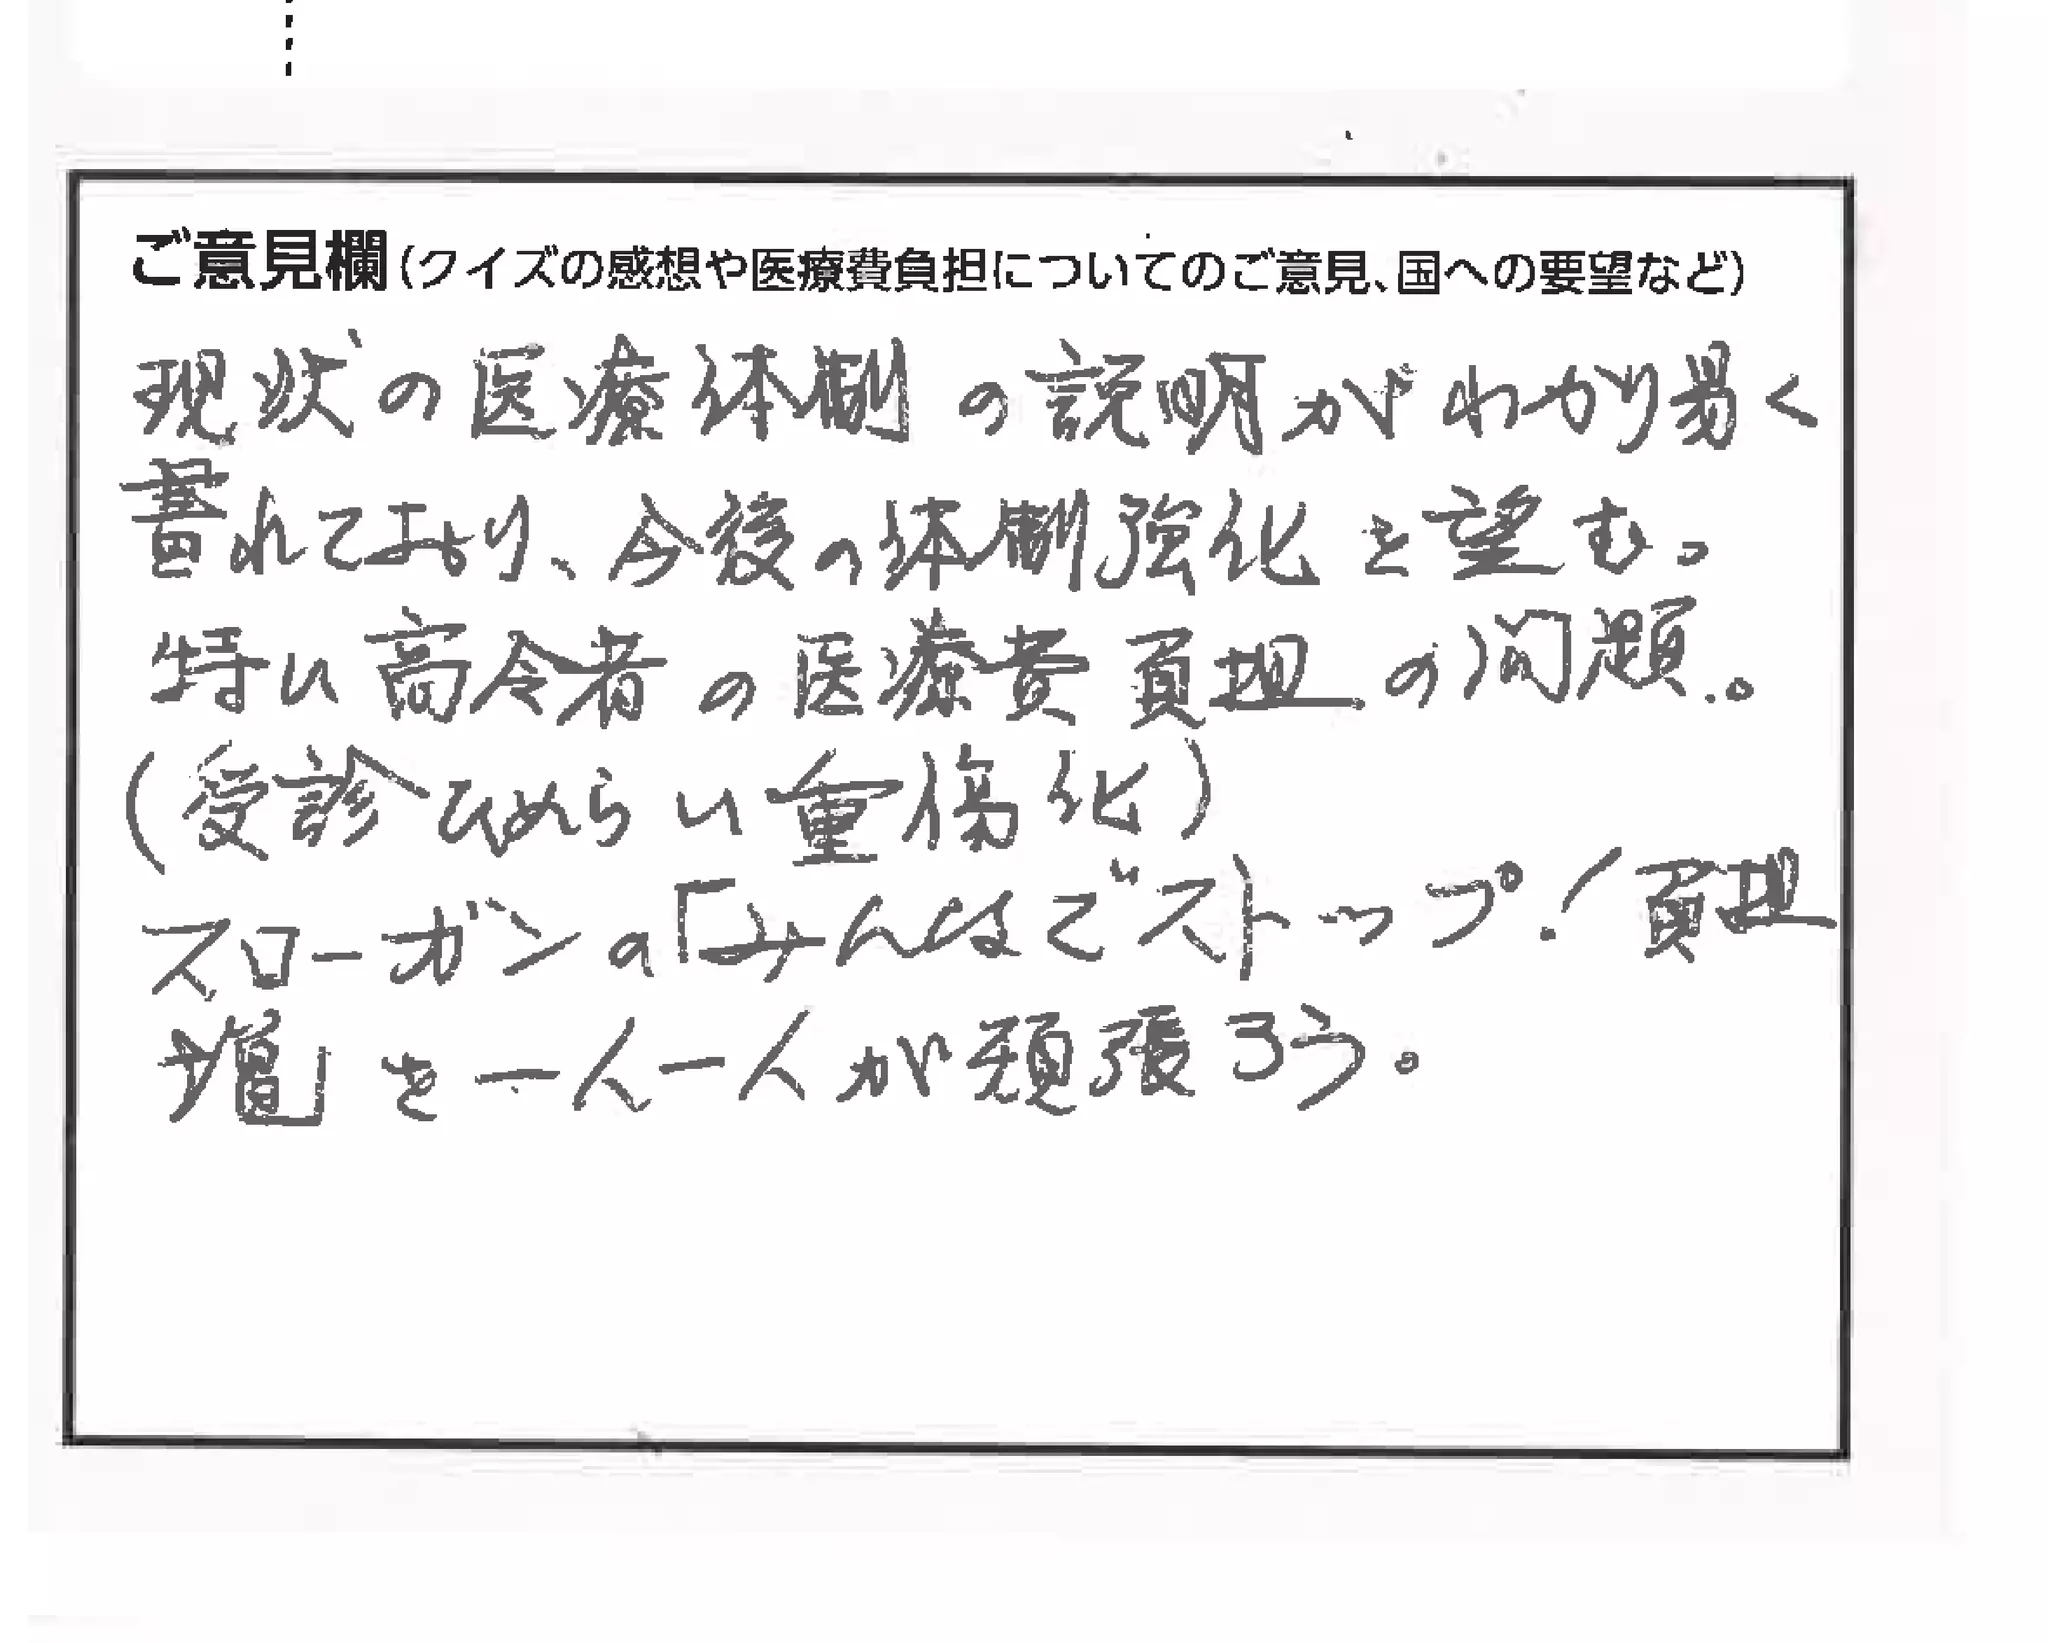 ご意見欄(クイズの感想や医療費負担についてのご意見、国への要望など)
現状の医療体制の説明がわかり易く
書れており、今後の体制強化を望む。
特に高令者の医療費負担の問題。
(受診ひめらい重傷化)
スローガンの「みんなでストップ!負担
増」を一人一人が頑張ろう。